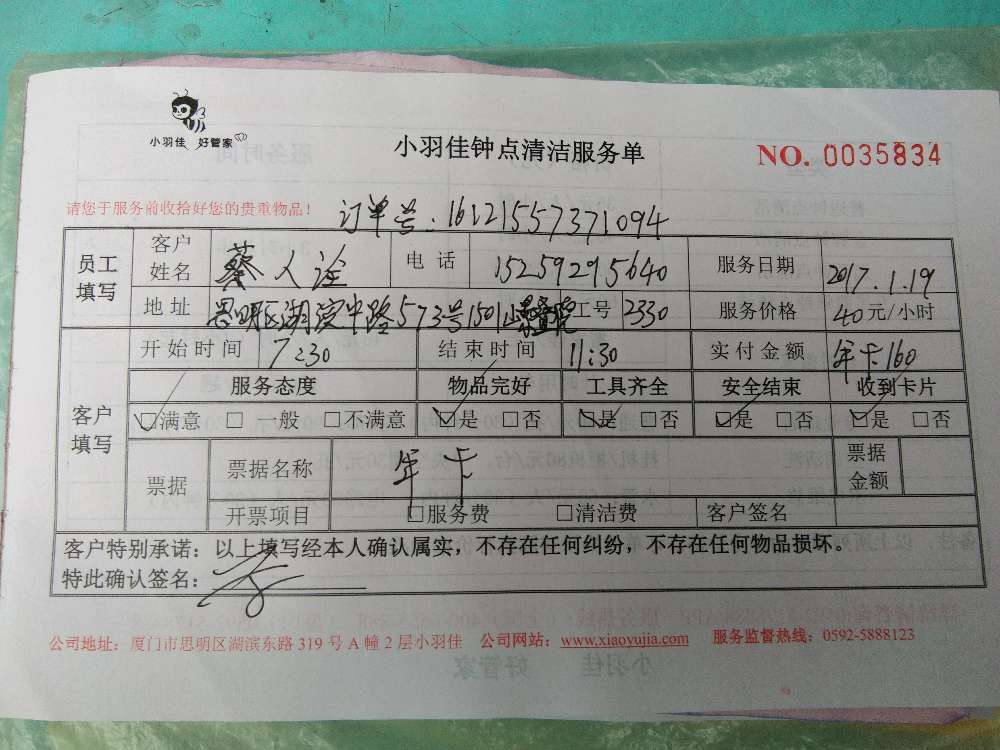 小羽佳 好管家
小羽佳钟点清洁服务单
NO. 0035834
请您于服务前收拾好您的贵重物品！
订单号：16121557371094
员工填写 客户姓名 蔡人诠 电话 15259295640 服务日期 2017.1.19
地址 思明区湖滨中路573号1501 工号 2330 服务价格 40元/小时
开始时间 7:30 结束时间 11:30 实付金额 年卡160
客户填写 服务态度 物品完好 工具齐全 安全结束 收到卡片
☑满意 □一般 □不满意 ☑是 □否 ☑是 □否 ☑是 □否 ☑是 □否
票据 票据名称 年卡 票据金额
开票项目 □服务费 □清洁费 客户签名
客户特别承诺：以上填写经本人确认属实，不存在任何纠纷，不存在任何物品损坏。
特此确认签名：
公司地址：厦门市思明区湖滨东路319号A幢2层小羽佳 公司网站：www.xiaoyujia.com 服务监督热线：0592-5888123